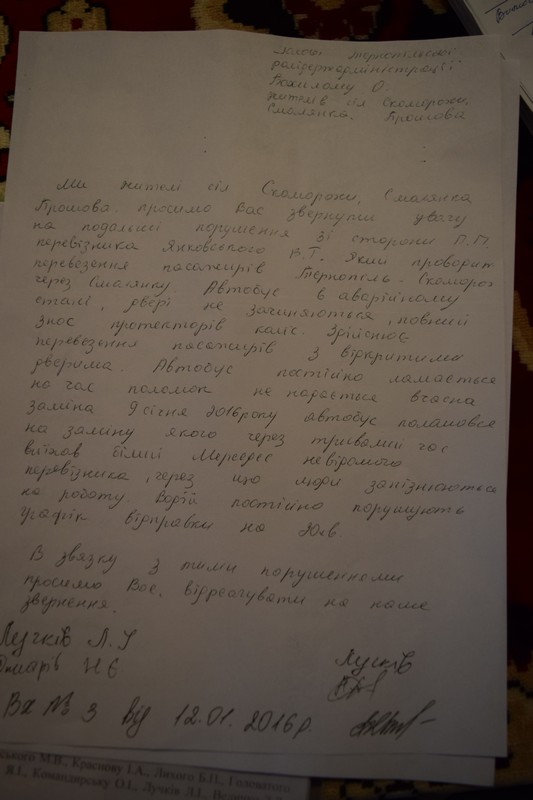 Голові Тернопільської
райдержадміністрації
Похилому О.
жителів сіл Скоморохи,
Смолянка. Прошова
Ми жителі сіл Скоморохи, Смолянка
Прошова. просимо Вас звернути увагу
на подальші порушення зі сторони П.П.
перевізника Янковського В.Т. Який проводит
перевезення пасажирів Тернопіль. Скоморох
через Смолянку. Автобус в аварійному
стані, двері не зачиняються, повний
знос протекторів коліс. Здійснює
перевезення пасажирів з відкритими
дверима. Автобус постійно ламається
на час поломок не надається вчасна
заміна 9 січня 2016 року автобус поламався
на заміну якого через тривалий час
виїхав білий Мерседес невідомого
перевізника, через що люди запізнюються
на роботу. Водій постійно порушують
графік відправки на 20хв
В звязку з тими порушеннями
просимо Вас, відреагувати на наше
звернення.
Лучків Л. І
Н Є
Лучків
Вх № 3 від 12.01. 2016 р.
ського М.В., Краснову І.А., Лихого Б.П., Головатого
Я.І., Командирську О.І., Лучків Л.І.,